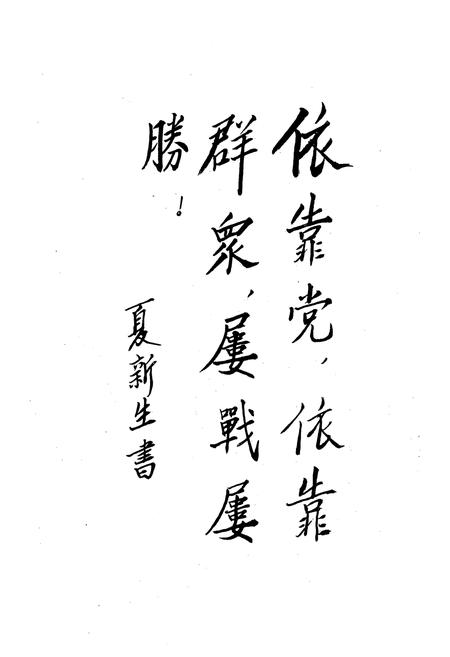 依靠党，依靠
群眾，屢戰屢
勝！
夏新生書